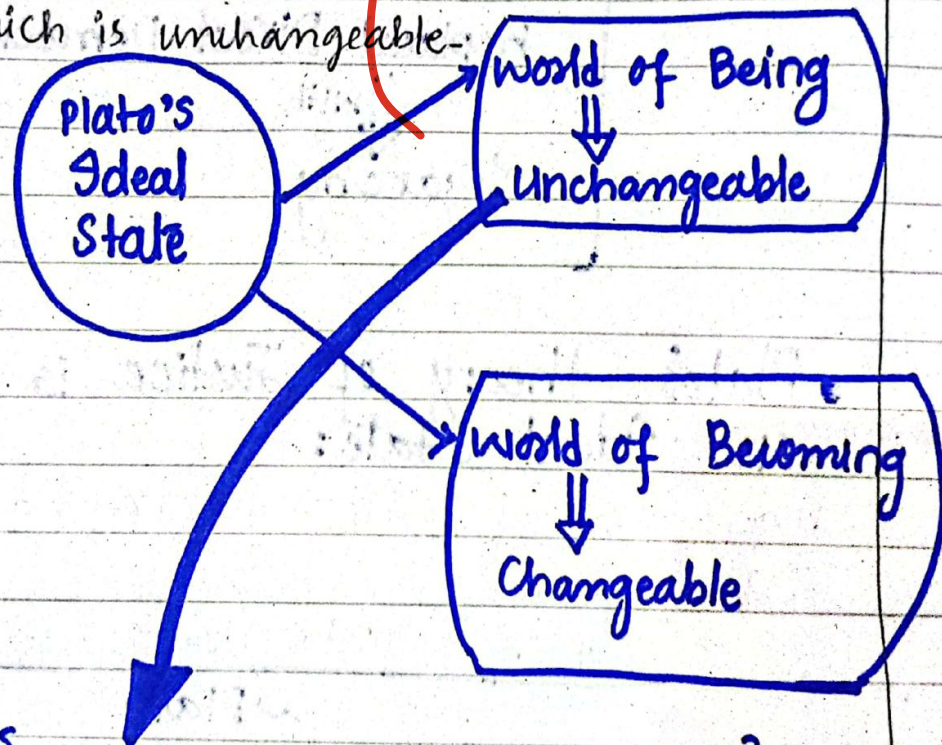 ich is unchangeable-
Plato's
Ideal
State
World of Being
⇓
Unchangeable
World of Becoming
⇓
Changeable
s